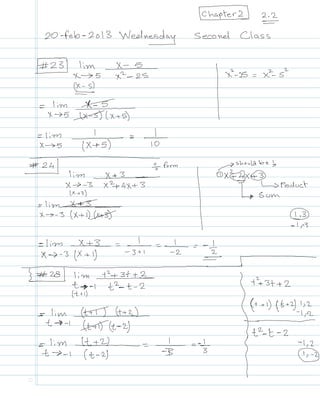 Chapter 2 2.2
20-feb-2013 Wednesday Second Class
#23 lim x→5 x-5 / x²-25
(x-5)
x²-25 = x²-5²
= lim x→5 x-5 / (x-5)(x+5)
= lim x→5 1 / (x+5) = 1/10
#24 lim x→-3 x+3 / x²+4x+3
(x+3)
form
should be 1
①x²+4x+3
Product
Sum
= lim x→-3 x+3 / (x+1)(x+3)
1,3
-1,-3
= lim x→-3 x+3 / (x+1) = 1/-3+1 = 1/-2 = -1/2
#28 lim t→-1 t²+3t+2 / t²-t-2
(t+1)
t²+3t+2
(t+1)(t+2) 1,2
-1,-2
= lim t→-1 (t+1)(t+2) / (t+1)(t-2)
t²-t-2
-1,2
1,-2
= lim t→-1 (t+2) / (t-2) = 1/-3 = -1/3